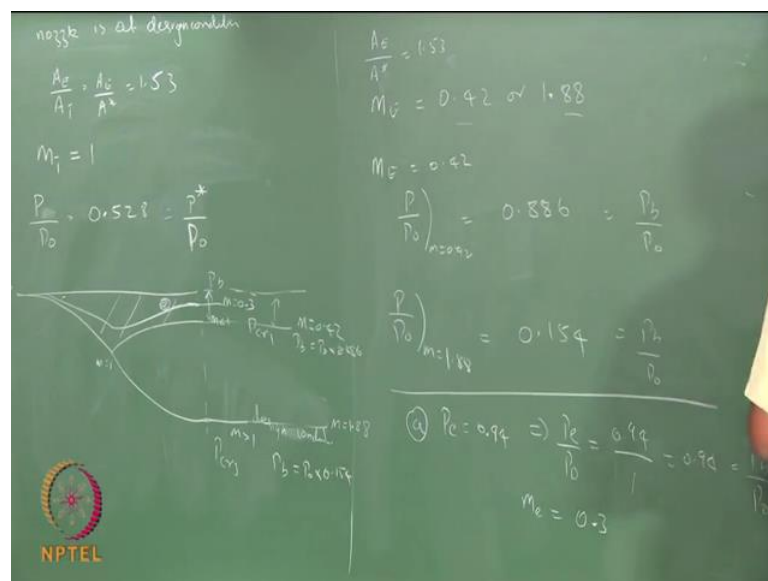 nozzle is at design condition
A_E/A_T = A_E/A* = 1.53
M_T = 1
P/P_0 = 0.528 = P*/P_0
P_b
M=0.3
M<1
P_cr1
M=0.42
P_b = P_0 x 0.886
M=1
M>1
design condt
M=1.88
P_cr3
P_b = P_0 x 0.154
A_E/A* = 1.53
M_E = 0.42 or 1.88
M_E = 0.42
P/P_0)_{M=0.42} = 0.886 = P_b/P_0
P/P_0)_{M=1.88} = 0.154 = P_b/P_0
(a) P_e = 0.94 ⇒ P_e/P_0 = 0.94/1 = 0.94 = P_b/P_0
M_e = 0.3
NPTEL